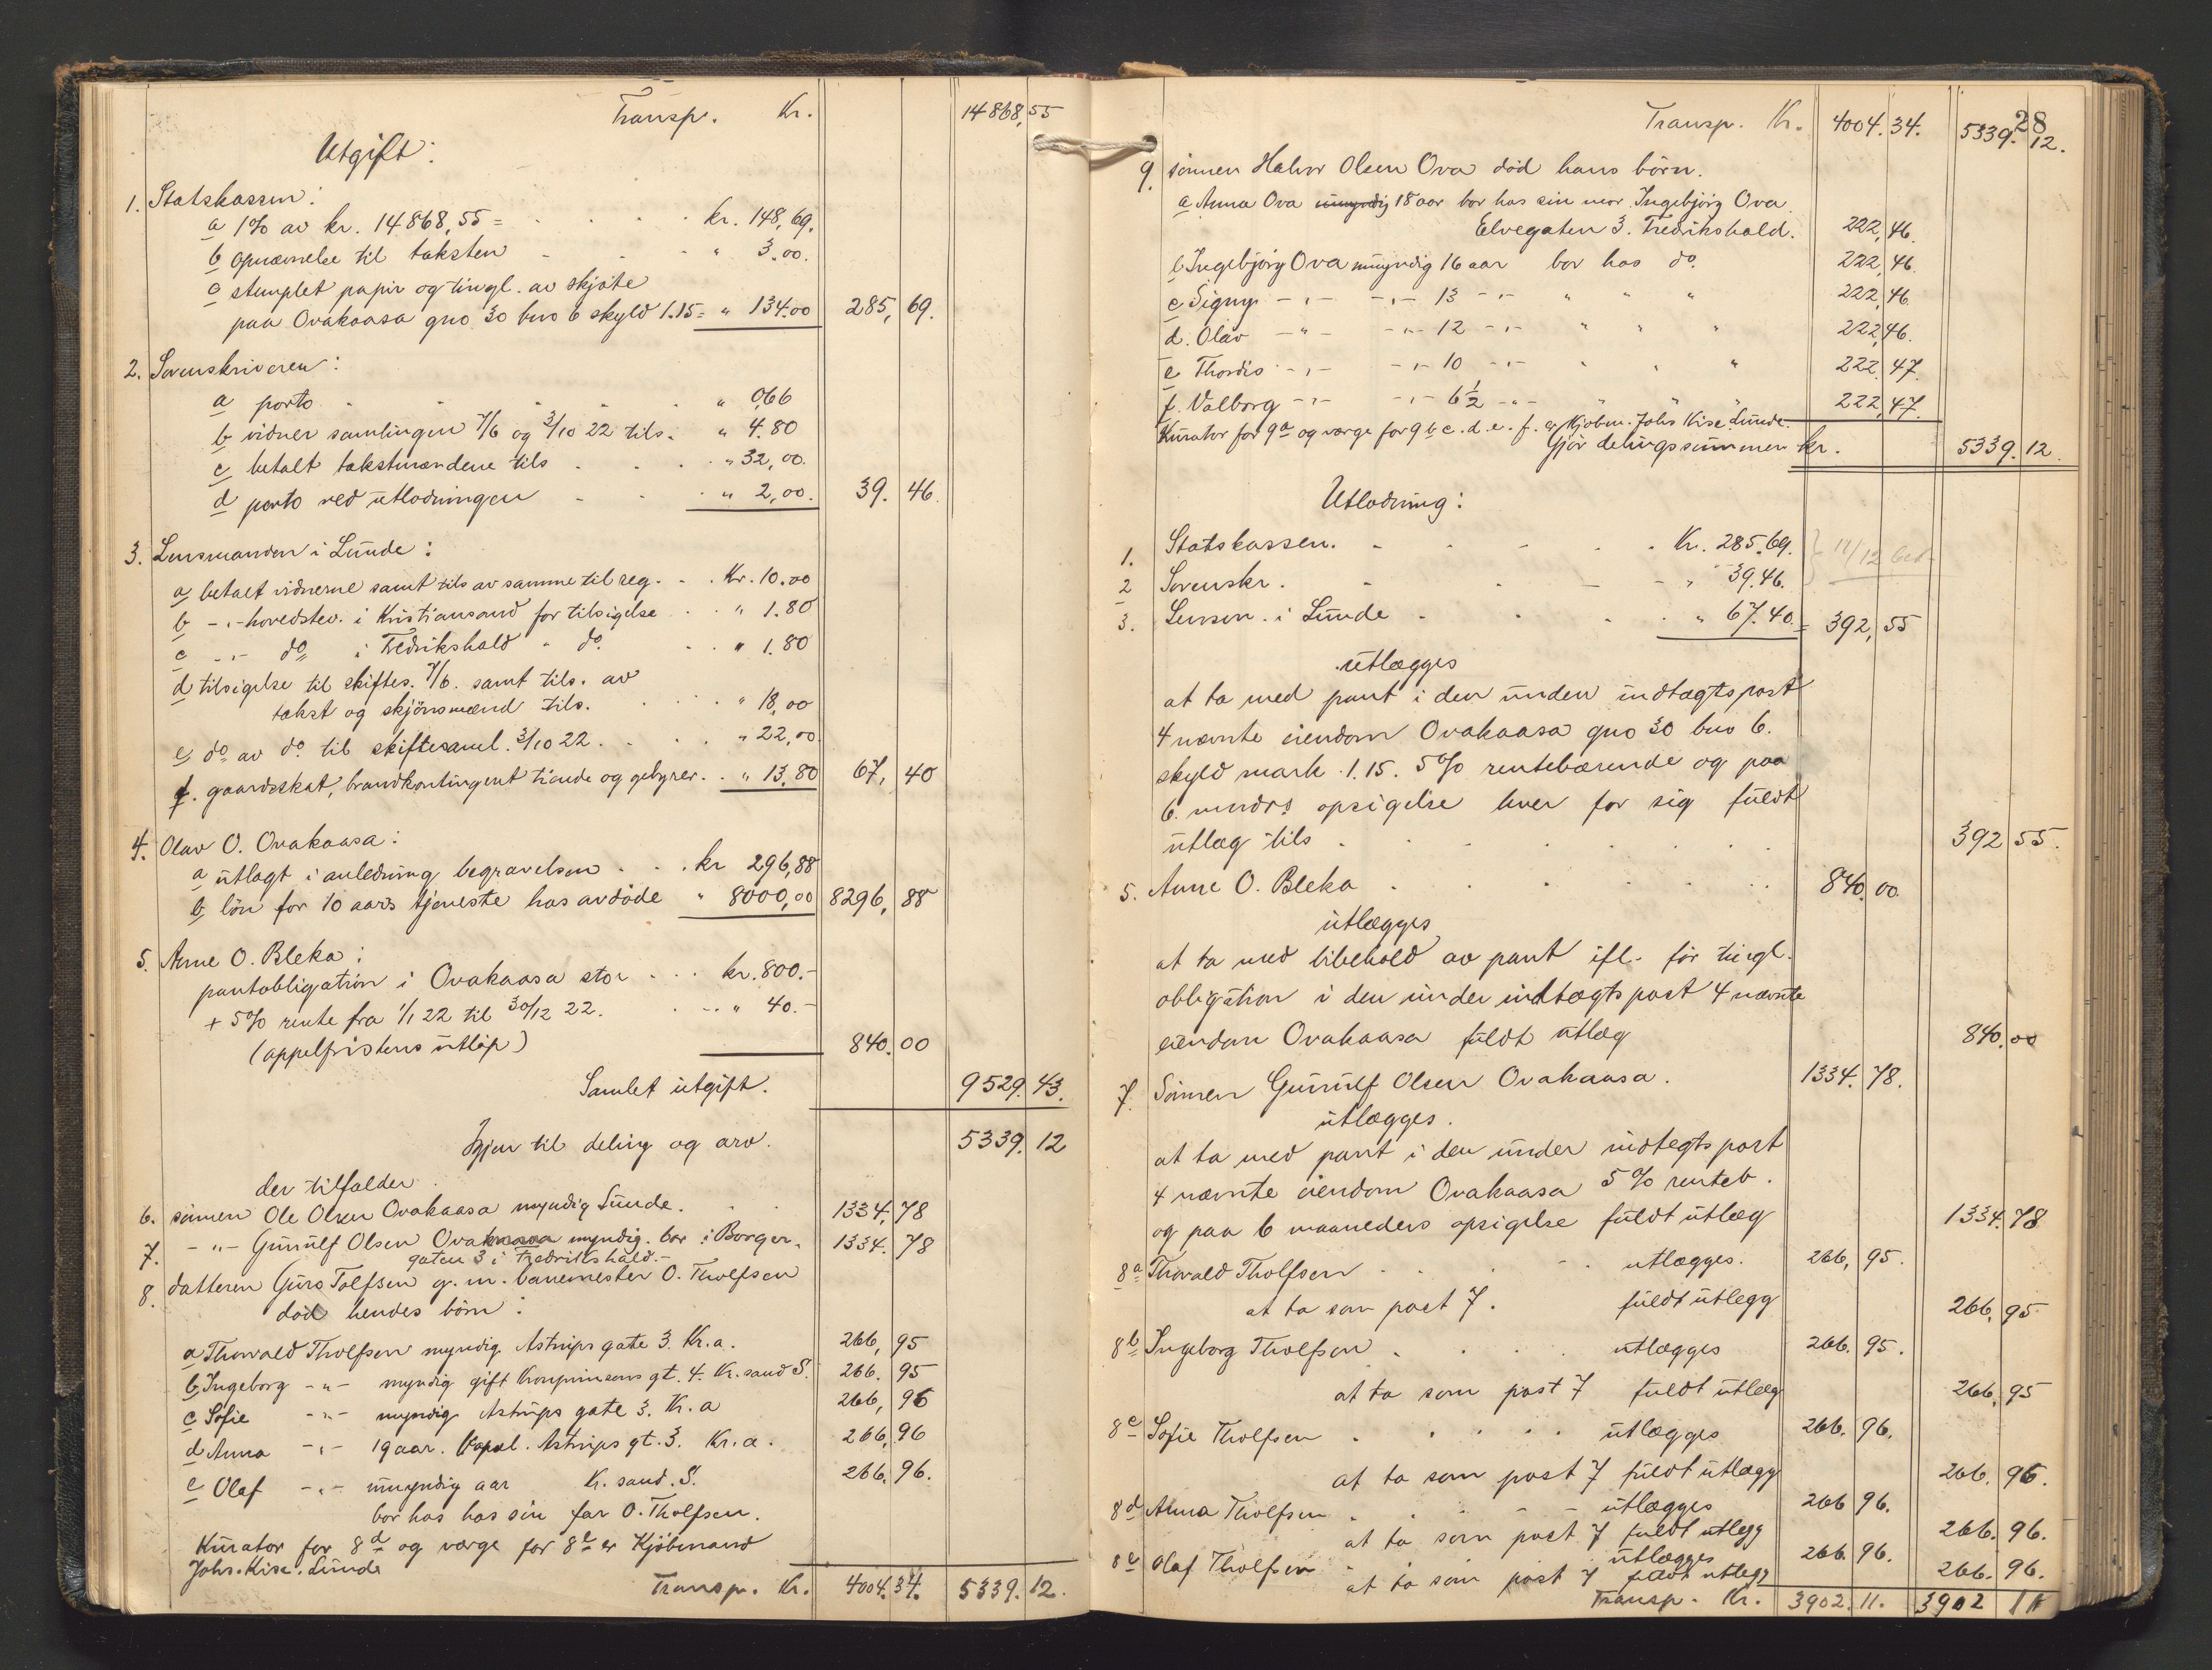 Transp. Kr. 14868,55
Utgift:
1. Statskassen:
a 1% av kr. 14868,55 = kr. 148,69.
b opnævnelse til taksten " 3.00.
c stemplet papir og tingl. av skjøte
paa Ovakaasa gno 30 bno 6 skyld 1.15 = " 134.00 285,69.
2. Sorenskriveren:
a porto " 0,66
b vidner samlingen 7/6 og 3/10 22 tils. " 4.80
c betalt takstmændene tils " 32,00.
d porto ved utlodningen " 2,00. 39.46.
3. Lensmanden i Lunde:
a betalt vidnerne samt tils av samme til reg. Kr. 10.00
b -"- hovedstev. i Kristiansand for tilsigelse " 1.80
c -"- do i Fredrikshald " do. " 1.80
d tilsigelse til skiftes. 7/6. samt tils. av
takst og skjönsmænd tils. " 18,00
e do av do til skiftesaml. 3/10 22. " 22,00.
f. gaardsskat, brandkontingent tiende og gebyrer. " 13.80 67,40
4. Olav O. Ovakaasa:
a utlagt i anledning begravelsen kr 296,88
b lön for 10 aars tjeneste hos avdöde " 8000,00 8296,88
5. Anne O. Bleka:
pantobligation i Ovakaasa stor kr. 800.-
+ 5% rente fra 1/1 22 til 30/12 22. " 40.-
(appelfristens utlöp) 840.00
Samlet utgift. 9529.43.
Igjen til deling og arv. 5339.12
der tilfalder
6. sönnen Ole Olsen Ovakaasa myndig Lunde. 1334,78
7. -"- Gunulf Olsen Ovakaasa myndig. bor i Borger- 1334.78
gaten 3 i Fredrikshald.-
8. datteren Guro Tolfsen g. m. banemester O. Tholfsen
död hendes börn:
a Thorvald Tholfsen myndig Astrups gate 3. Kr.a. 266,95
b Ingeborg -"- myndig gift Kronprinsens gt. 4. Kr.sand S. 266.95
c Sofie -"- myndig Astrups gate 3. Kr.a 266,96
d Anna -"- 19 aar. Astrups gt. 3. Kr.a. 266,96
e Olaf -"- umyndig aar Kr.sand. S. 266.96.
bor hos hos sin far O. Tholfsen.
Kurator for 8d og værge for 8e er Kjöbmand
Johs. Kise. Lunde
Transp. Kr. 4004.34. 5339.12.
28
Transp. Kr. 4004.34. 5339.12.
9. sönnen Halvor Olsen Ova död hans börn.
a Anna Ova umyndig 18 aar bor hos sin mor Ingebjörg Ova
Elvegaten 3. Fredrikshald. 222,46.
b Ingebjörg Ova umyndig 16 aar bor hos do. 222,46.
c Signy -"- -"- 13 -"- " " " 222,46.
d. Olav -"- -"- 12 -"- " " " 222,46.
e Thordis -"- -"- 10 -"- " " " 222.47.
f. Valborg -"- -"- 6 1/2 -"- " " 222,47.
Kurator for 9a og værge for 9 b c. d. e. f. er Kjöbm. Johs Kise Lunde.
Gjör delingssummen kr. 5339.12.
Utlodning:
1. Statskassen. Kr. 285.69. } 12/12 bet.
2 Sorenskr. " 39.46.
3. Lensm. i Lunde " 67.40 = 392,55
utlægges
at ta med pant i den under indtægtspost
4 nævnte eiendom Ovakaasa gno 30 bno 6.
skyld mark 1.15. 5% rentebærende og paa
6. mndrs opsigelse hver for sig fuldt
utlæg tils 392 55.
5. Anne O. Bleka 840.00
utlægges
at ta med bibehold av pant ifl. för tingl.
obligation i den under indtægtspost 4 nævnte
eiendom Ovakaasa fuldt utlæg 840.00
7. Sönnen Gunulf Olsen Ovakaasa. 1334.78.
utlægges.
at ta med pant i den under indtegtspost
4 nævnte eiendom Ovakaasa 5% renteb.
og paa 6 maaneders opsigelse fuldt utlæg 1334.78
8a Thorvald Tholfsen utlægges. 266,95.
at ta som post 7. fuldt utlegg 266,95
8b Ingeborg Tholfsen utlægges 266.95.
at ta som post 7 fuldt utlæg 266,95
8c Sofie Tholfsen utlægges 266.96.
at ta som post 7 fuldt utlægg 266.96.
8d Anna Tholfsen utlægges 266 96.
at ta som post 7 fuldt utlegg 266.96.
8e Olaf Tholfsen utlægges 266.96.
at ta som post 7 fuldt utlegg 266.96.
Transp. Kr. 3902.11. 3902 11